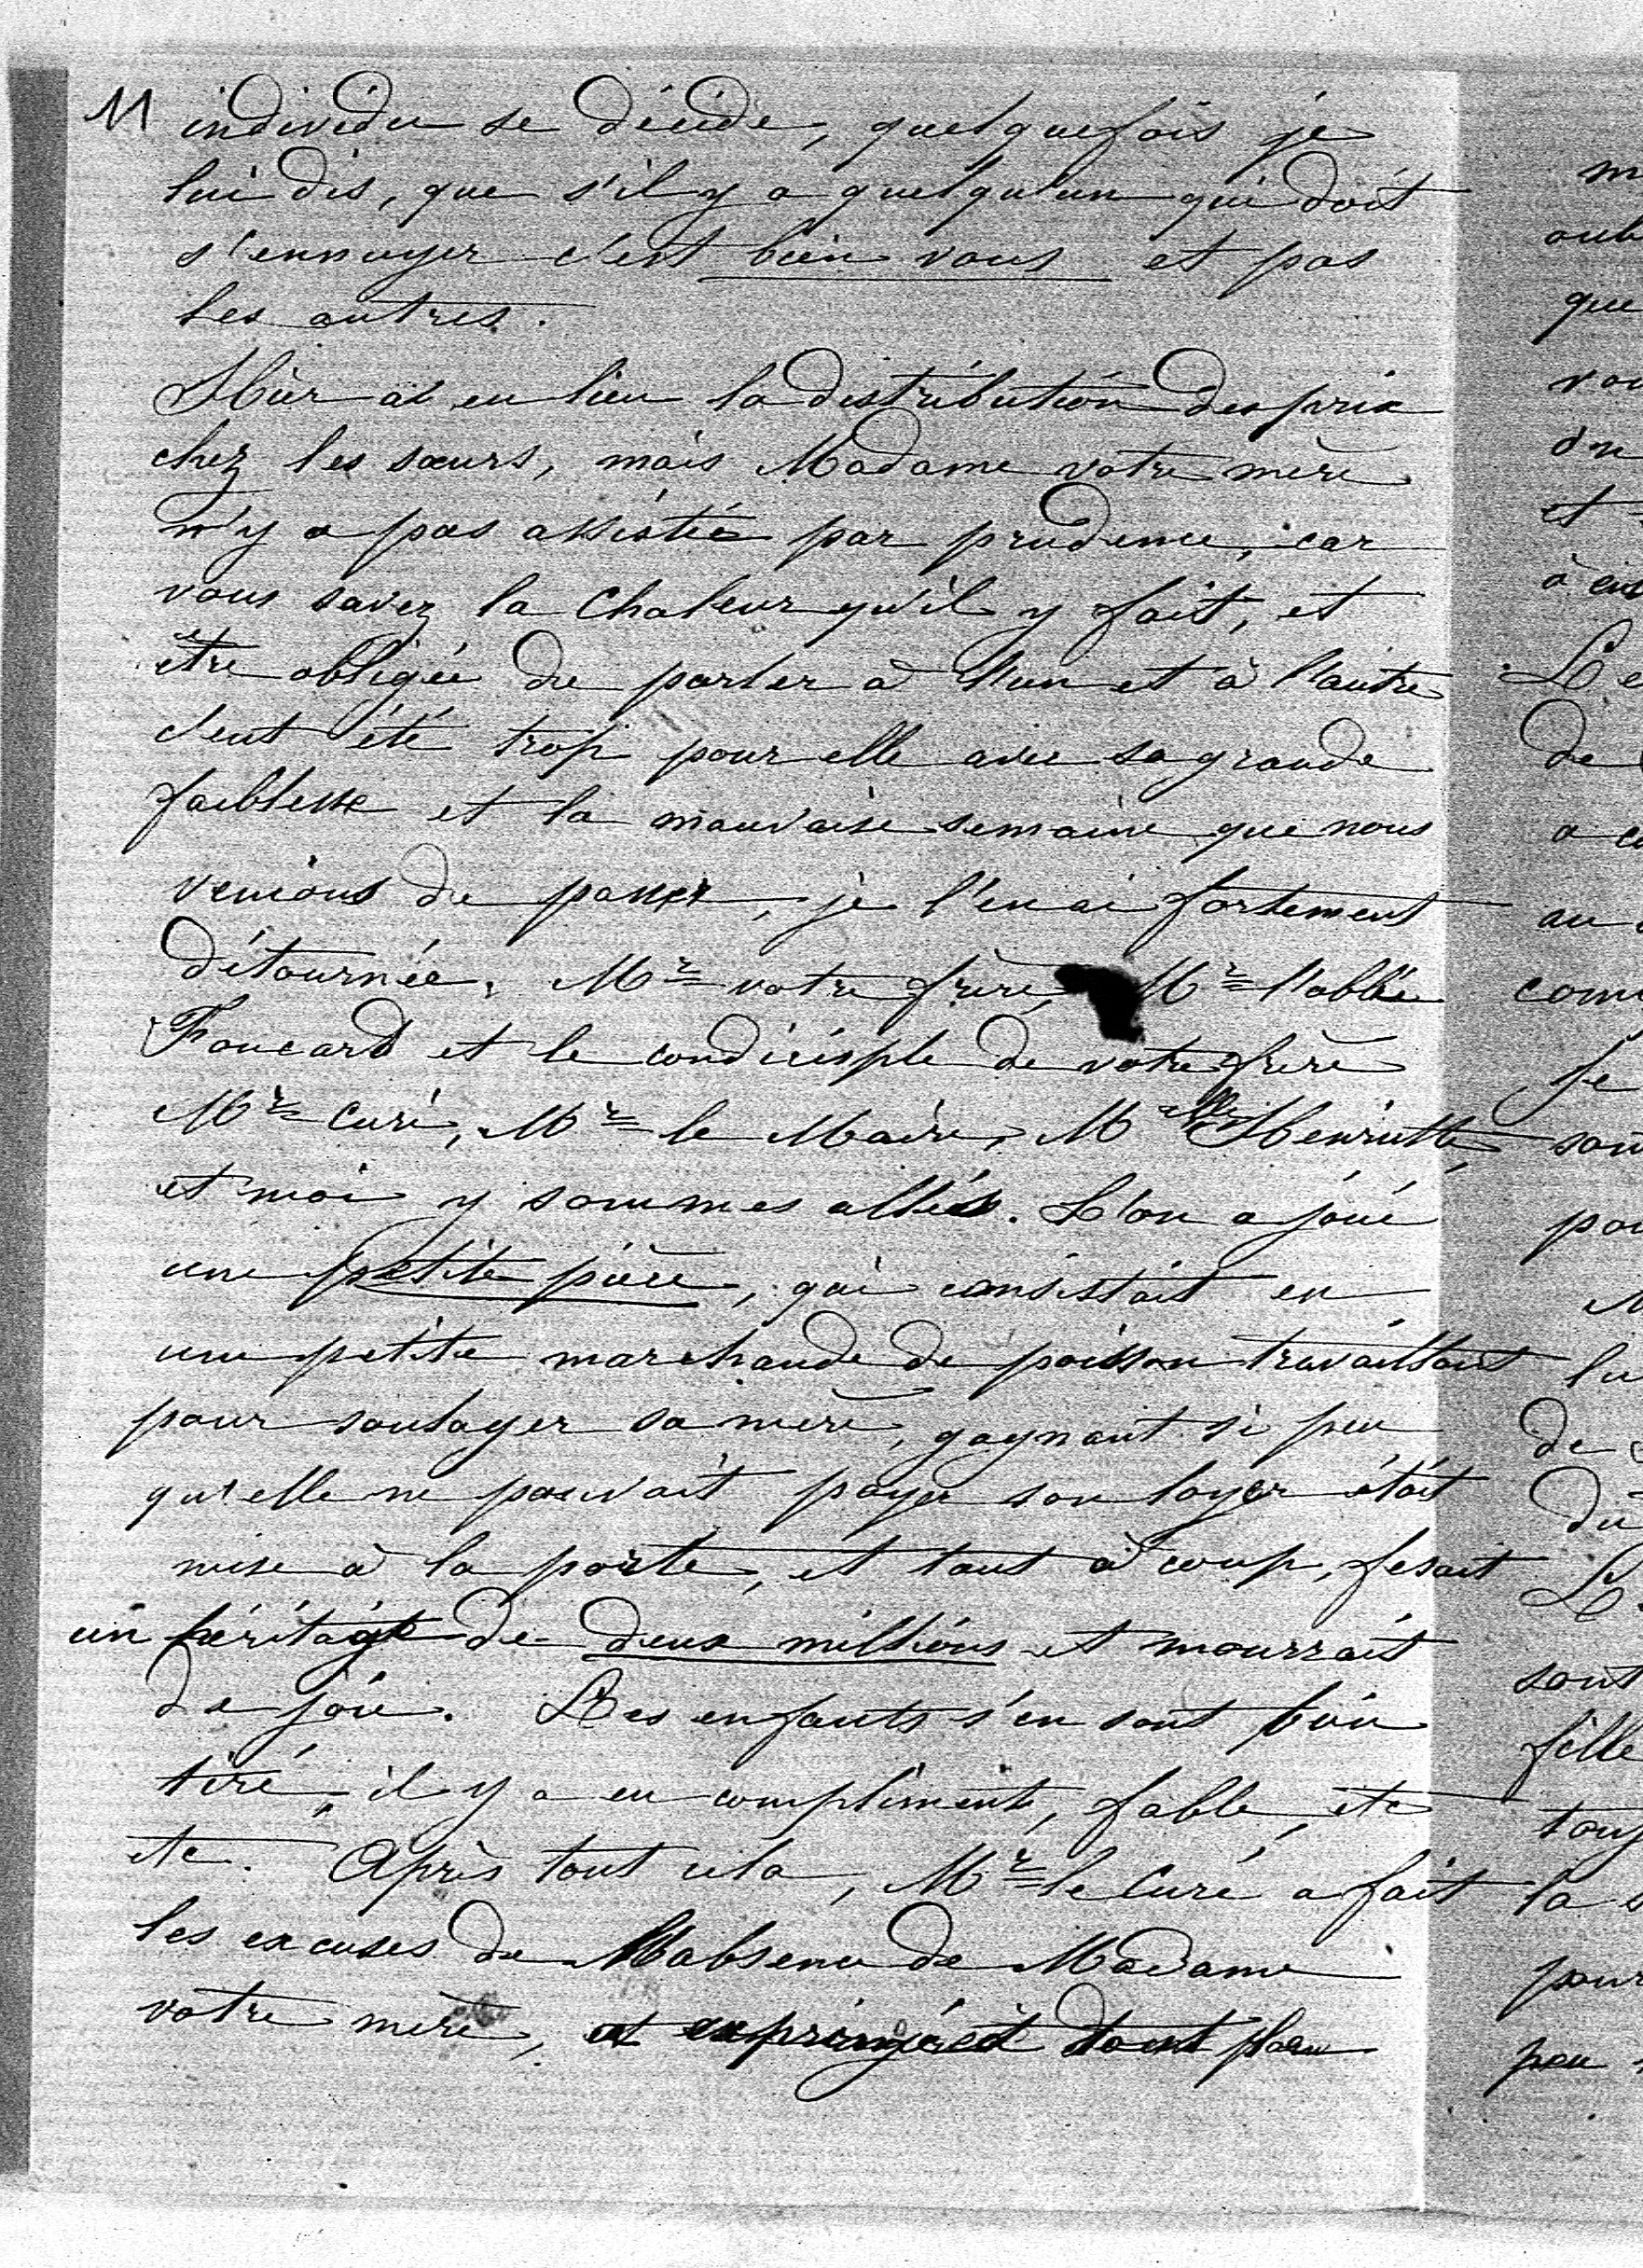 11 individu se décide, quelquefois je
lui dis, que s'il y a quelqu'un qui doit
s'ennuyer c'est bien vous et pas
les autres.
Hier a eu lieu la distribution des prix
chez les sœurs, mais Madame votre mère
n'y a pas assistée par prudence, car
vous savez la chaleur qu'il y fait, et
être obligée de parler à l'un et à l'autre
c'eut été trop pour elle avec sa grande
faiblesse et la mauvaise semaine que nous
venions de passer, je l'en ai fortement
détournée. Mr votre frère, Mr l'abbé
Foucard et le condiciple de votre frère
Mr Curé, Mr le Maire, Melle Henriette,
et moi y sommes allés. L'on a joué
une petite pièce, qui consistait en
une petite marchande de poisson travaillant
pour soulager sa mère, gagnant si peu
qu'elle ne pouvait payer son loyer était
mise à la porte, et tout à coup, fesait
un héritage de deux millions et mourrait
de joie. Les enfants s'en sont bien
tiré, il y a eu compliment, fable, etc
etc. Après tout cela, Mr le Curé a fait
les excuses de l'absence de Madame
votre mère, et